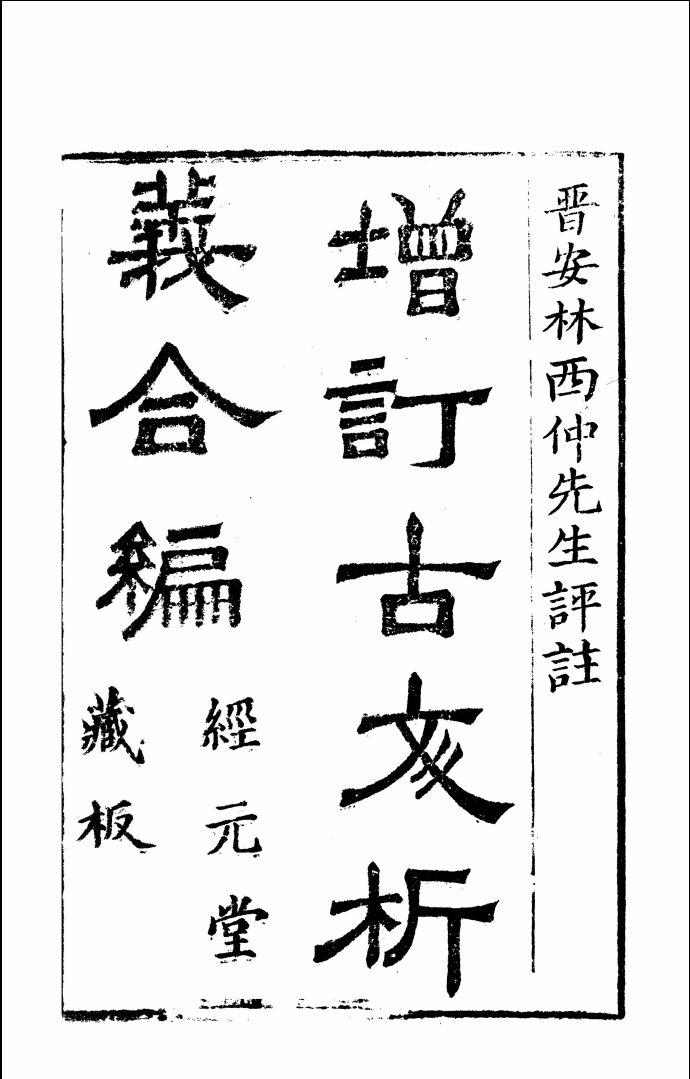 晋安林西仲先生評註
增訂古文析
義合編
經元堂
藏板